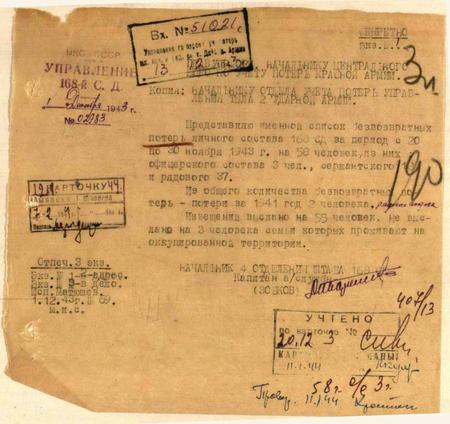 Вх. № 51021с
13 12 3
СЕКРЕТНО
Экз. №1
НКО-СССР
УПРАВЛЕНИЕ
168-й С. Д.
1 Декабря 1943 г.
№ 02783
НАЧАЛЬНИКУ ЦЕНТРАЛЬНОГО
ПО УЧЕТУ ПОТЕРЬ КРАСНОЙ АРМИИ.
Копия: НАЧАЛЬНИКУ ОТДЕЛА УЧЕТА ПОТЕРЬ УПРАВ-
ЛЕНИЯ ТЫЛА 2 УДАРНОЙ АРМИИ.
3л
190
Представляю именной список безвозвратных
потерь личного состава 168 сд за период с 20
по 30 ноября 1943 г. на 58 человек, из них
офицерского состава 3 чел., сержантского
и рядового 37.
Из общего количества безвозвратных по-
терь - потери за 1941 год 2 человека,
Извещения выслано на 55 человек, не выс-
лано на 3 человека семьи которых проживают на
оккупированной территории.
КАРТОЧКУ 44.
Отпеч. 3 экз.
Экз. № 1-в адрес.
Экз. № 3-в дело.
Исп. Матюшев.
1.12.43г. № 69.
м.н.с.
НАЧАЛЬНИК 4 ОТДЕЛЕНИЯ ШТАБА 168
Капитан а/службы
(ЗОБКОВ)
407/13
УЧТЕНО
по карточке №
20.12 3
11.1.44
58 г. о/о 3 г.
11.1.44